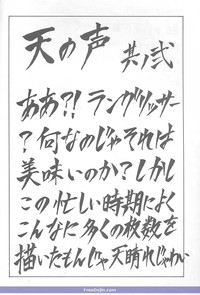 天の声 其ノ弐
ああ?! ラングリッサー
?何なのじゃそれは
美味いのか?しかし
この忙しい時期によく
こんなに多くの枚数を
描いたもんじゃ天晴れじゃわい
FreeDoujin.com